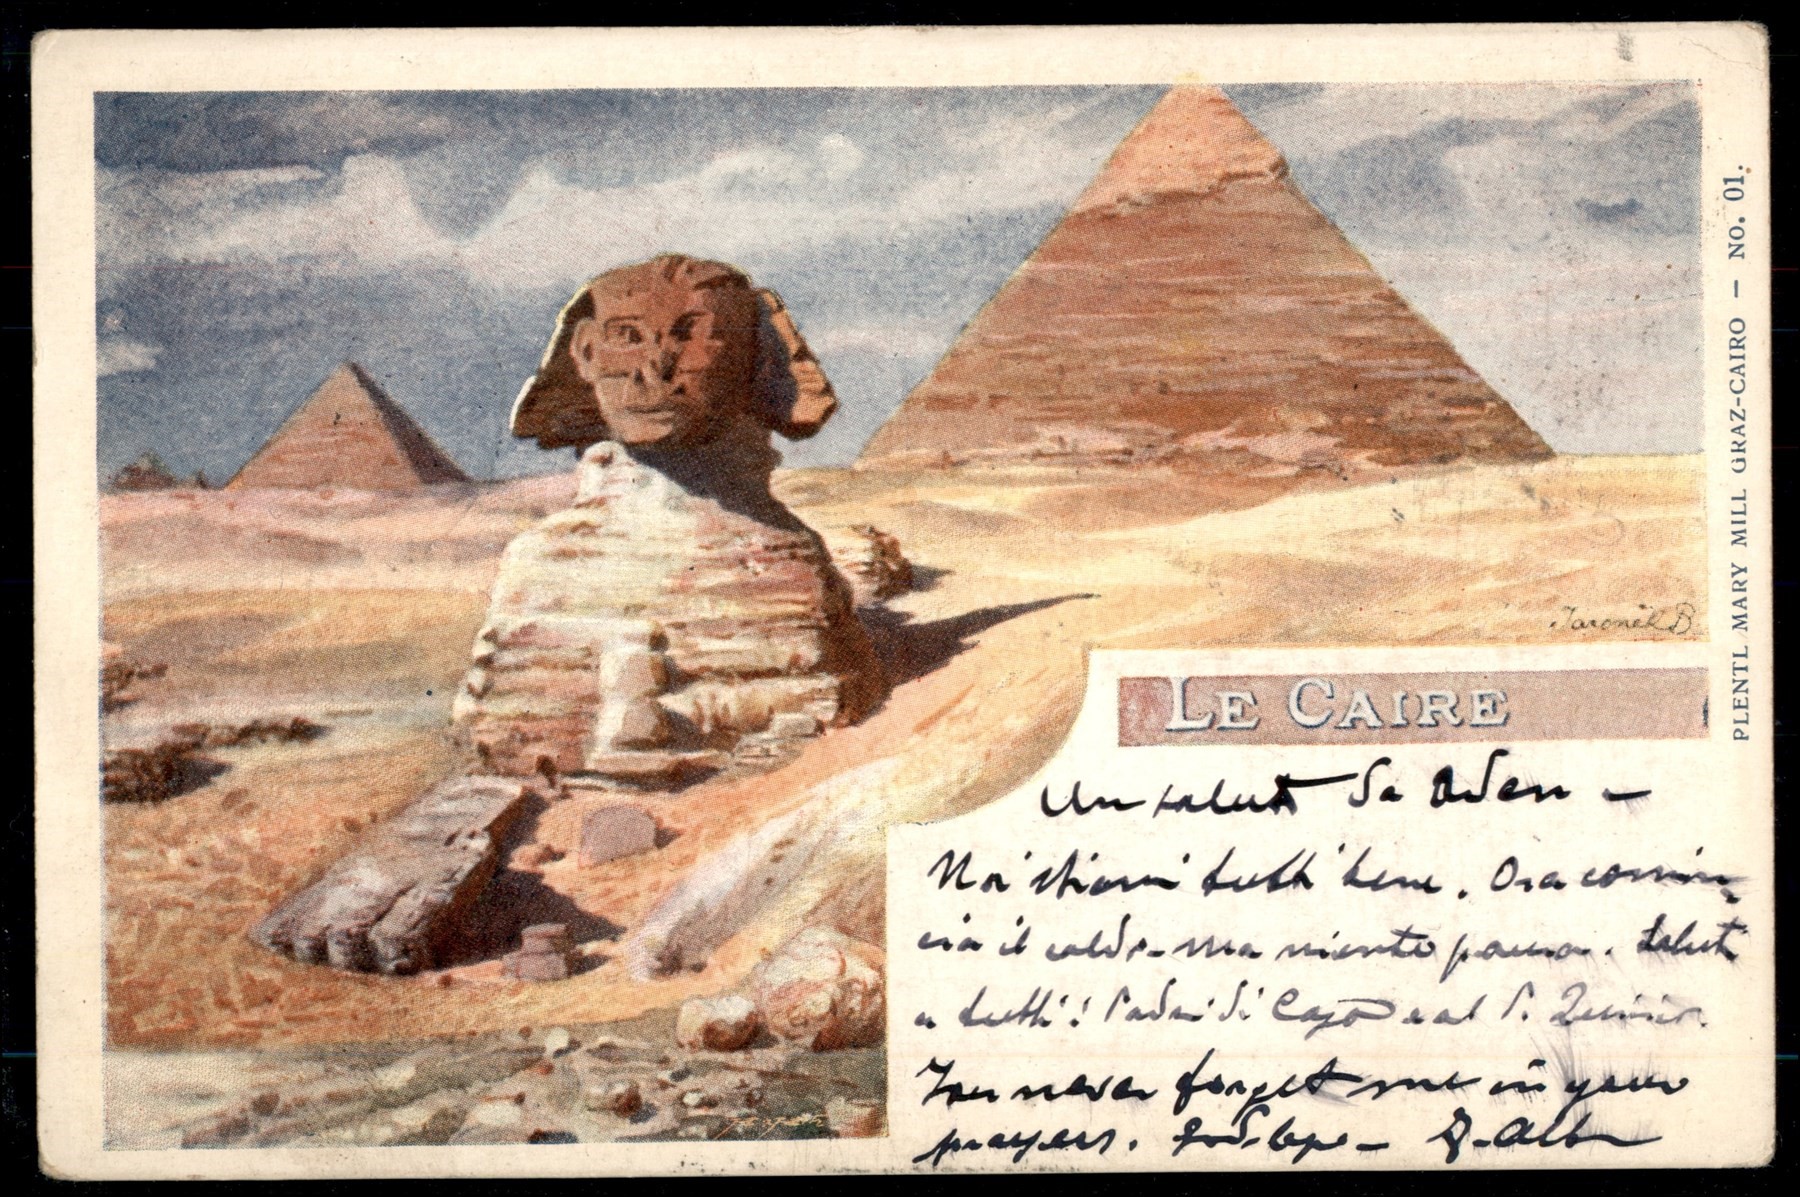 PLENTL MARY MILL GRAZ-CAIRO — No. 01.
Jaronek B
LE CAIRE
Un saluto da Aden —
Noi stiamo tutti bene. Ora comin-
cia il caldo — ma niente paura. Saluti
a tutti! Padri di Capo e al P.
You never forget me in your
prayers. P. Alb